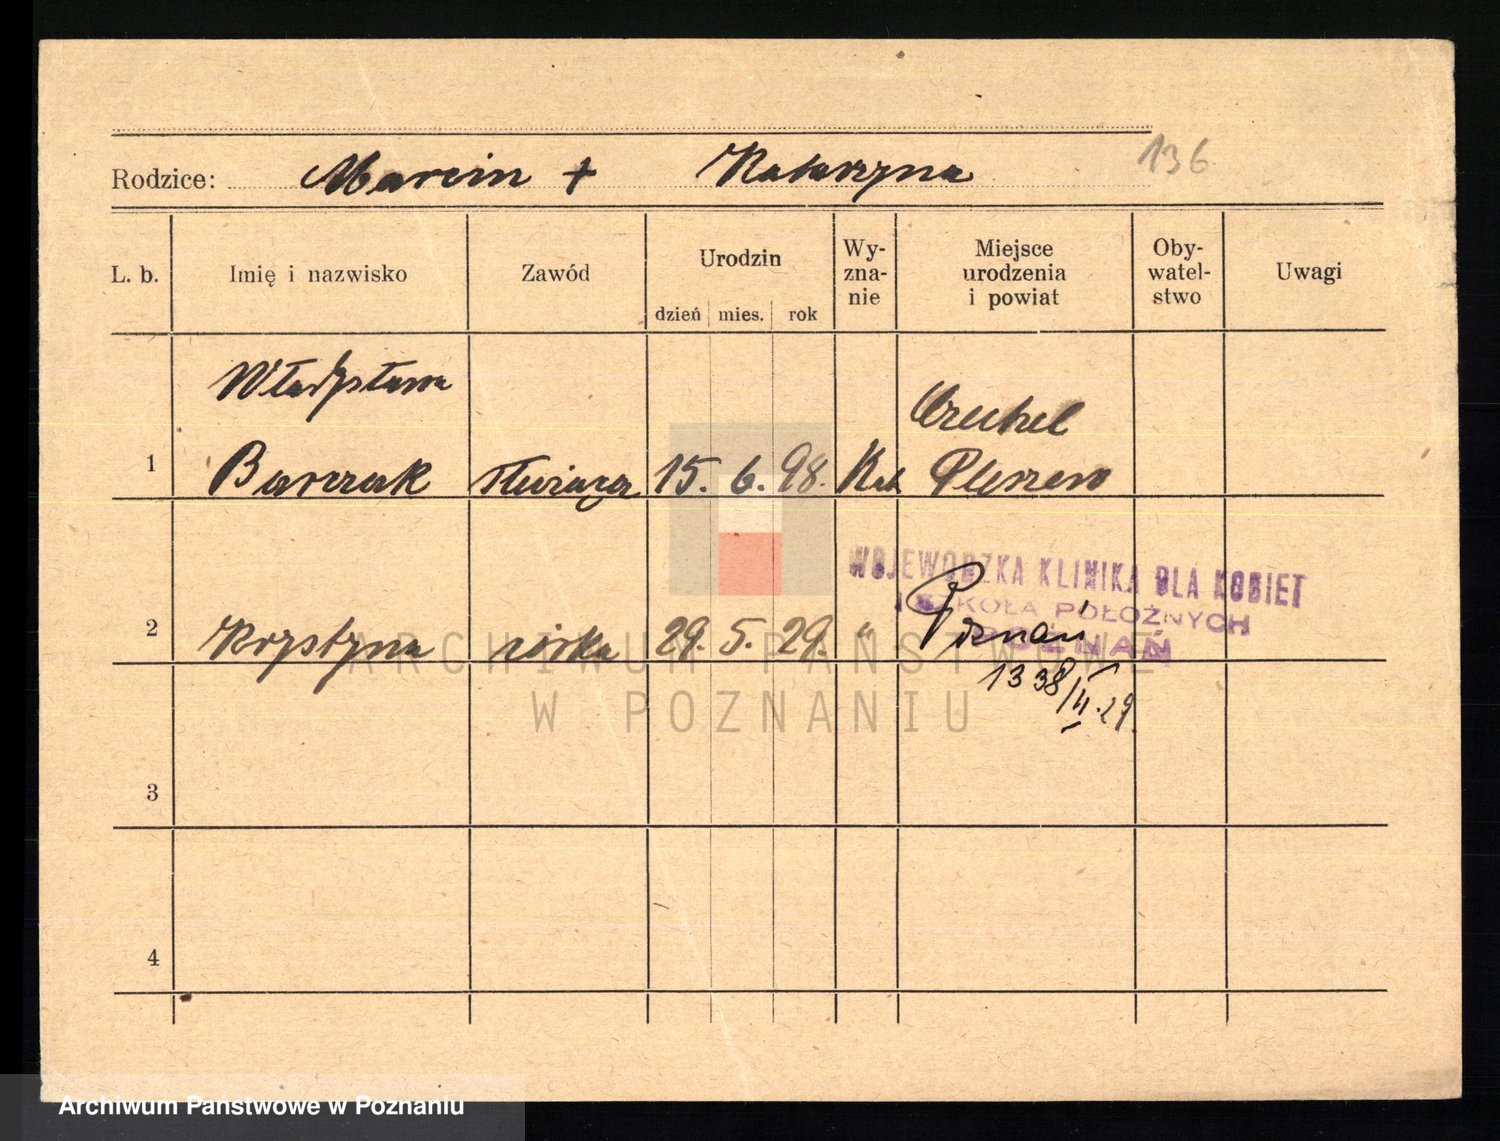 136
Rodzice: Marcin + Katarzyna
L. b. Imię i nazwisko Zawód Urodzin dzień mies. rok Wy-zna-nie Miejsce urodzenia i powiat Oby-watel-stwo Uwagi
Władysława
1 Barczak służąca 15. 6. 98. Kat Pleszew
WOJEWÓDZKA KLINIKA DLA KOBIET
I SZKOŁA POŁOŻNYCH
POZNAŃ
2 Krystyna córka 29. 5. 29. " Poznań
1338/II.29.
3
4
ARCHIWUM PAŃSTWOWE
W POZNANIU
Archiwum Państwowe w Poznaniu